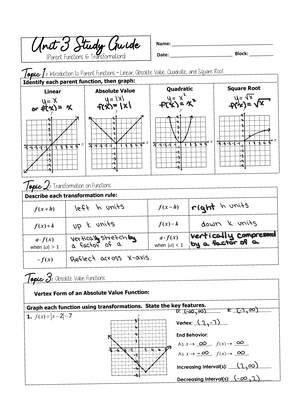 Unit 3 Study Guide
(Parent Functions & Transformations)
Name:
Date: Block:
Topic 1: Introduction to Parent Functions - Linear, Absolute Value, Quadratic, and Square Root
Identify each parent function, then graph:
Linear Absolute Value Quadratic Square Root
y = x y = |x| y = x² y = √x
or f(x) = x f(x) = |x| f(x) = x² f(x) = √x
Topic 2: Transformation on Functions
Describe each transformation rule:
f(x + h) left h units f(x – h) right h units
f(x) + k up k units f(x) – k down k units
a · f(x) when |a| > 1 vertically stretch by a factor of a
a · f(x) when |a| < 1 vertically compressed by a factor of a
–f(x) Reflect across x-axis
Topic 3: Absolute Value Functions
Vertex Form of an Absolute Value Function:
Graph each function using transformations. State the key features.
1. f(x) = |x – 2| – 7
D: (-∞, ∞) R: (-7, ∞)
Vertex: (2, -7)
End Behavior:
As x → -∞ f(x) → ∞
As x → ∞ f(x) → ∞
Increasing Interval(s): (2, ∞)
Decreasing Interval(s): (-∞, 2)